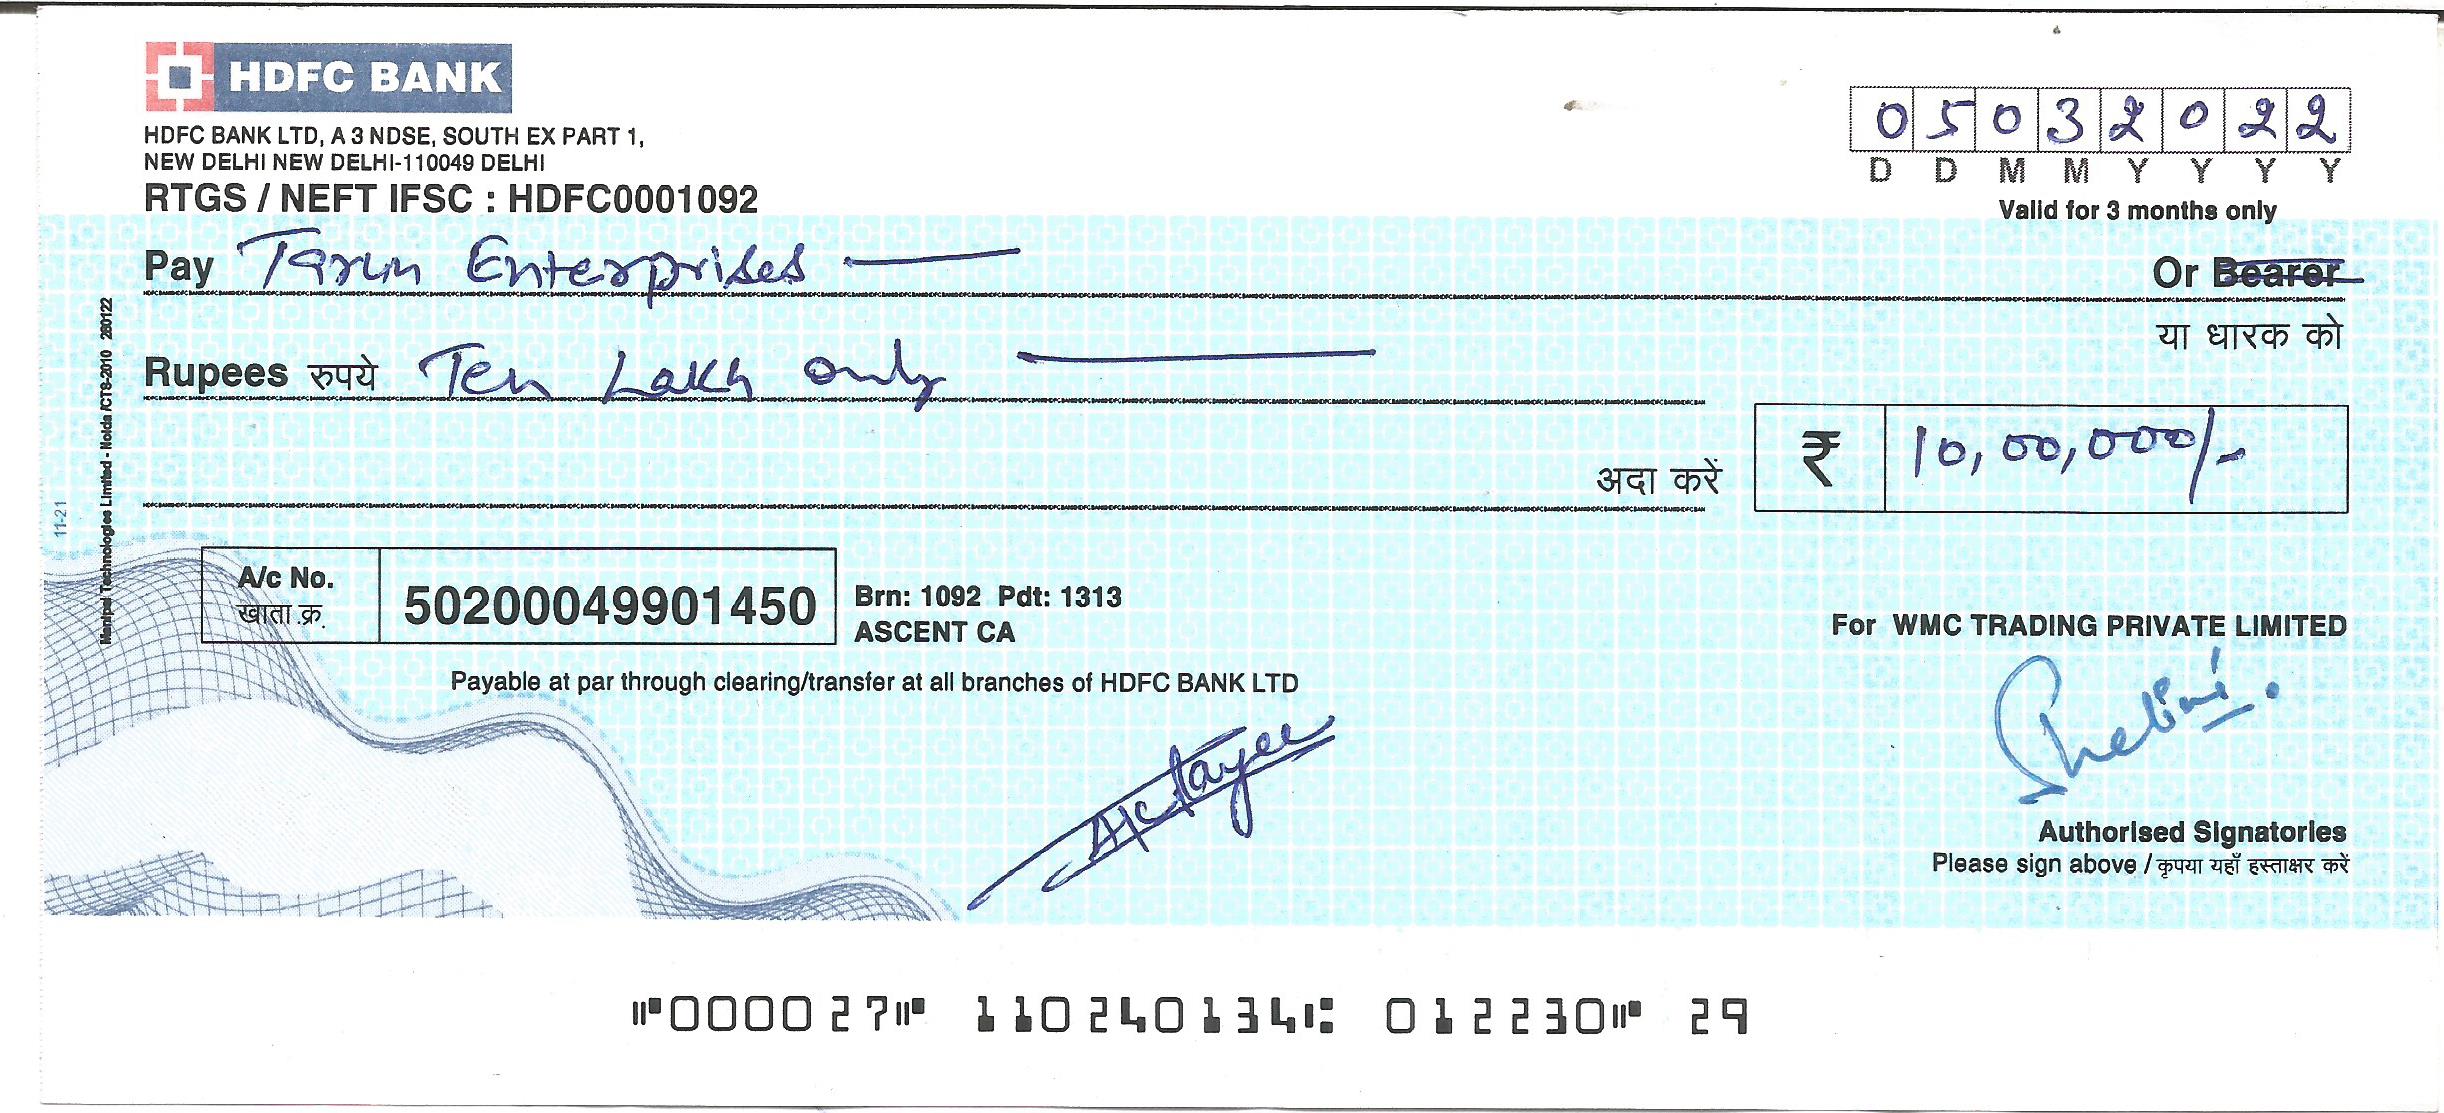 HDFC BANK
HDFC BANK LTD, A 3 NDSE, SOUTH EX PART 1,
NEW DELHI NEW DELHI-110049 DELHI
RTGS / NEFT IFSC : HDFC0001092
05032022
D D M M Y Y Y Y
Valid for 3 months only
Pay Tarun Enterprises Or Bearer
या धारक को
Rupees रुपये Ten Lakh only
अदा करें ₹ 10,00,000/-
A/c No. 50200049901450
खाता.क्र.
Brn: 1092 Pdt: 1313
ASCENT CA
Payable at par through clearing/transfer at all branches of HDFC BANK LTD
For WMC TRADING PRIVATE LIMITED
A/c Payee
Authorised Signatories
Please sign above / कृपया यहाँ हस्ताक्षर करें
11-21
Manipal Technologies Limited - Noida /CTS-2010 280122
⑈000027⑈ 110240134⑆ 012230⑈ 29